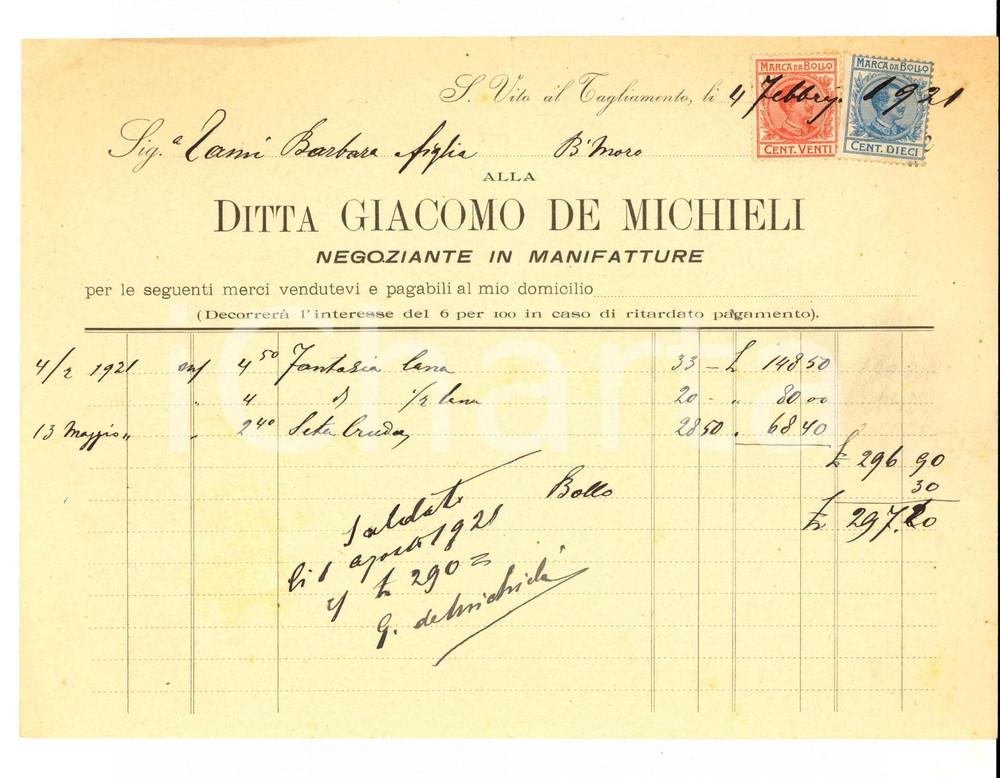 MARCA DA BOLLO MARCA DA BOLLO
S. Vito al Tagliamento, li 4 Febbr. 1921
CENT. VENTI CENT. DIECI
Sig.ª Barbara figlia B. Moro
ALLA
DITTA GIACOMO DE MICHIELI
NEGOZIANTE IN MANIFATTURE
per le seguenti merci vendutevi e pagabili al mio domicilio
(Decorrerà l'interesse del 6 per 100 in caso di ritardato pagamento).
4/2 1921 4 50 Fantasia lana 33 – £ 148 50
" 4 d 1/2 lana 20 – " 80.00
13 Maggio " " 2 40 Seta Cruda 28 50 " 68 40
£ 296 90
Bollo 30
£ 297.20
Saldato
li 1 agosto 1921
£ 290 =
G. de Michieli
iCharta